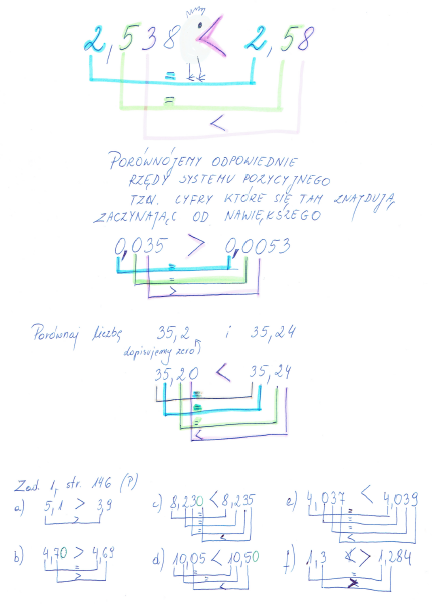 2,538 < 2,58
=
=
<
PORÓWNÓJEMY ODPOWIEDNIE
RZĘDY SYSTEMU POZYCYJNEGO
TZN. CYFRY KTÓRE SIĘ TAM ZNAJDUJĄ
ZACZYNAJĄC OD NAWIĘKSZEGO
0,035 > 0,0053
=
=
>
Porównaj liczbę 35,2 i 35,24
dopisujemy zero
35,20 < 35,24
=
=
=
<
Zad. 1, str. 146 (P)
a) 5,1 > 3,9
>
b) 4,70 > 4,69
=
>
c) 8,230 < 8,235
=
=
=
<
d) 10,05 < 10,50
=
=
<
e) 4,037 < 4,039
=
=
=
<
f) 1,3 > 1,284
=
>